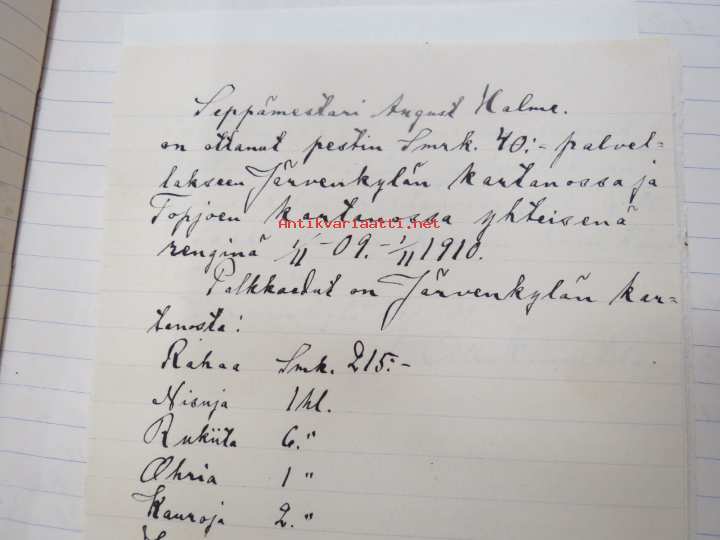 Seppämestari August Halme.
on ottanut pestin Smrk. 40:- palvel=
lakseen Järvenkylän kartanossa ja
Topjoen kartanossa yhteisenä
Antikvariaatti.net
renginä 1/11 -09. - 1/11 1910.
Palkkaedut on Järvenkylän kar=
tanosta:
Rahaa Smk. 215:-
Nisuja 1 hl.
Rukiita 6. "
Ohria 1 "
Kauroja 2. "